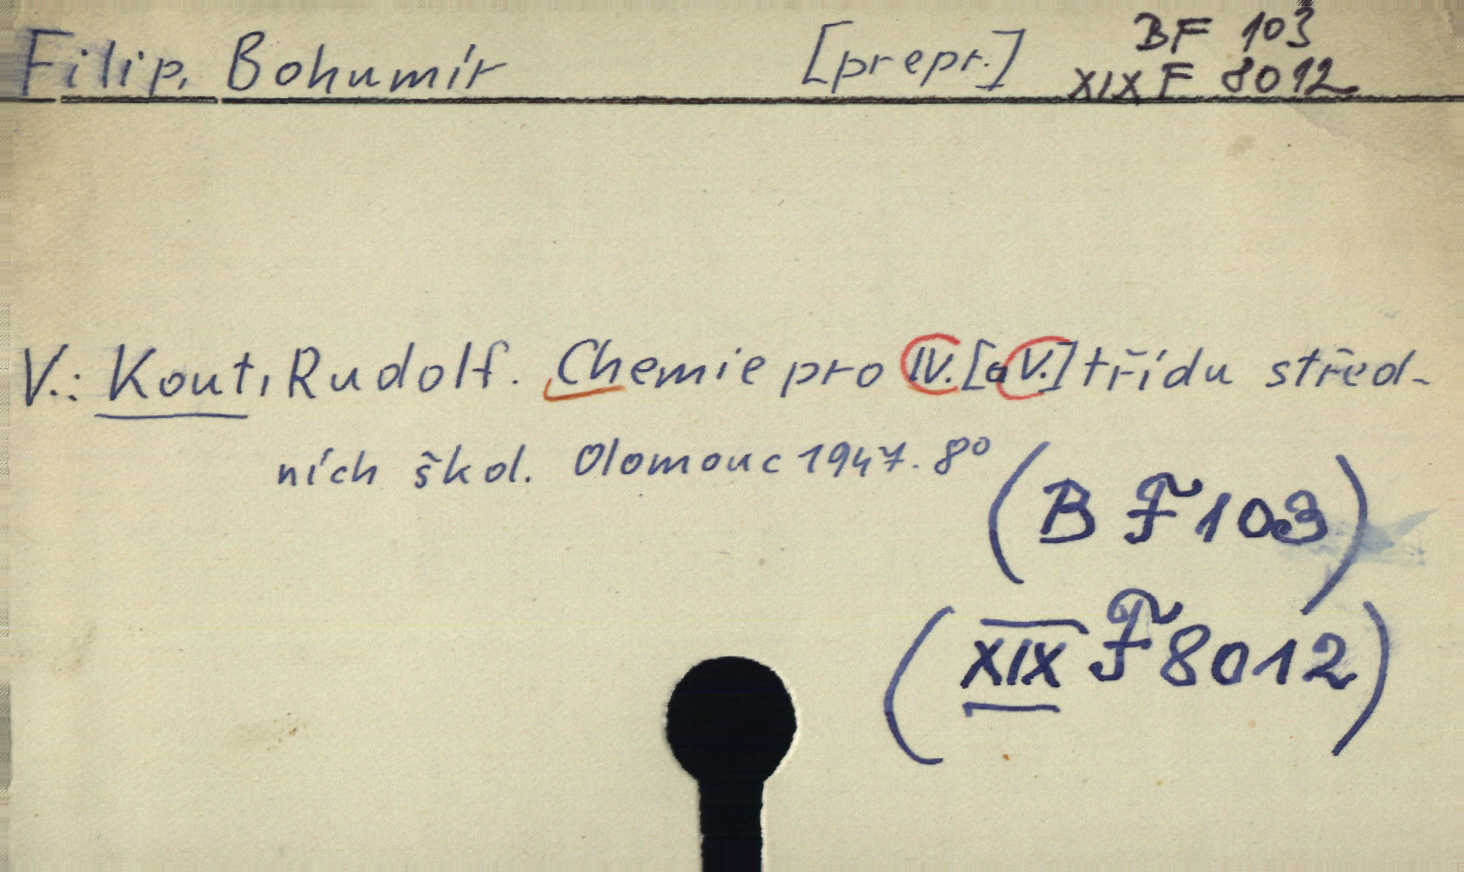 Filip, Bohumír [prepr.] BF 103
XIX F 8012
V.: Kout, Rudolf. Chemie pro IV. [a V.] třídu střed-
ních škol. Olomouc 1947. 8°
(B F 103)
(XIX F 8012)